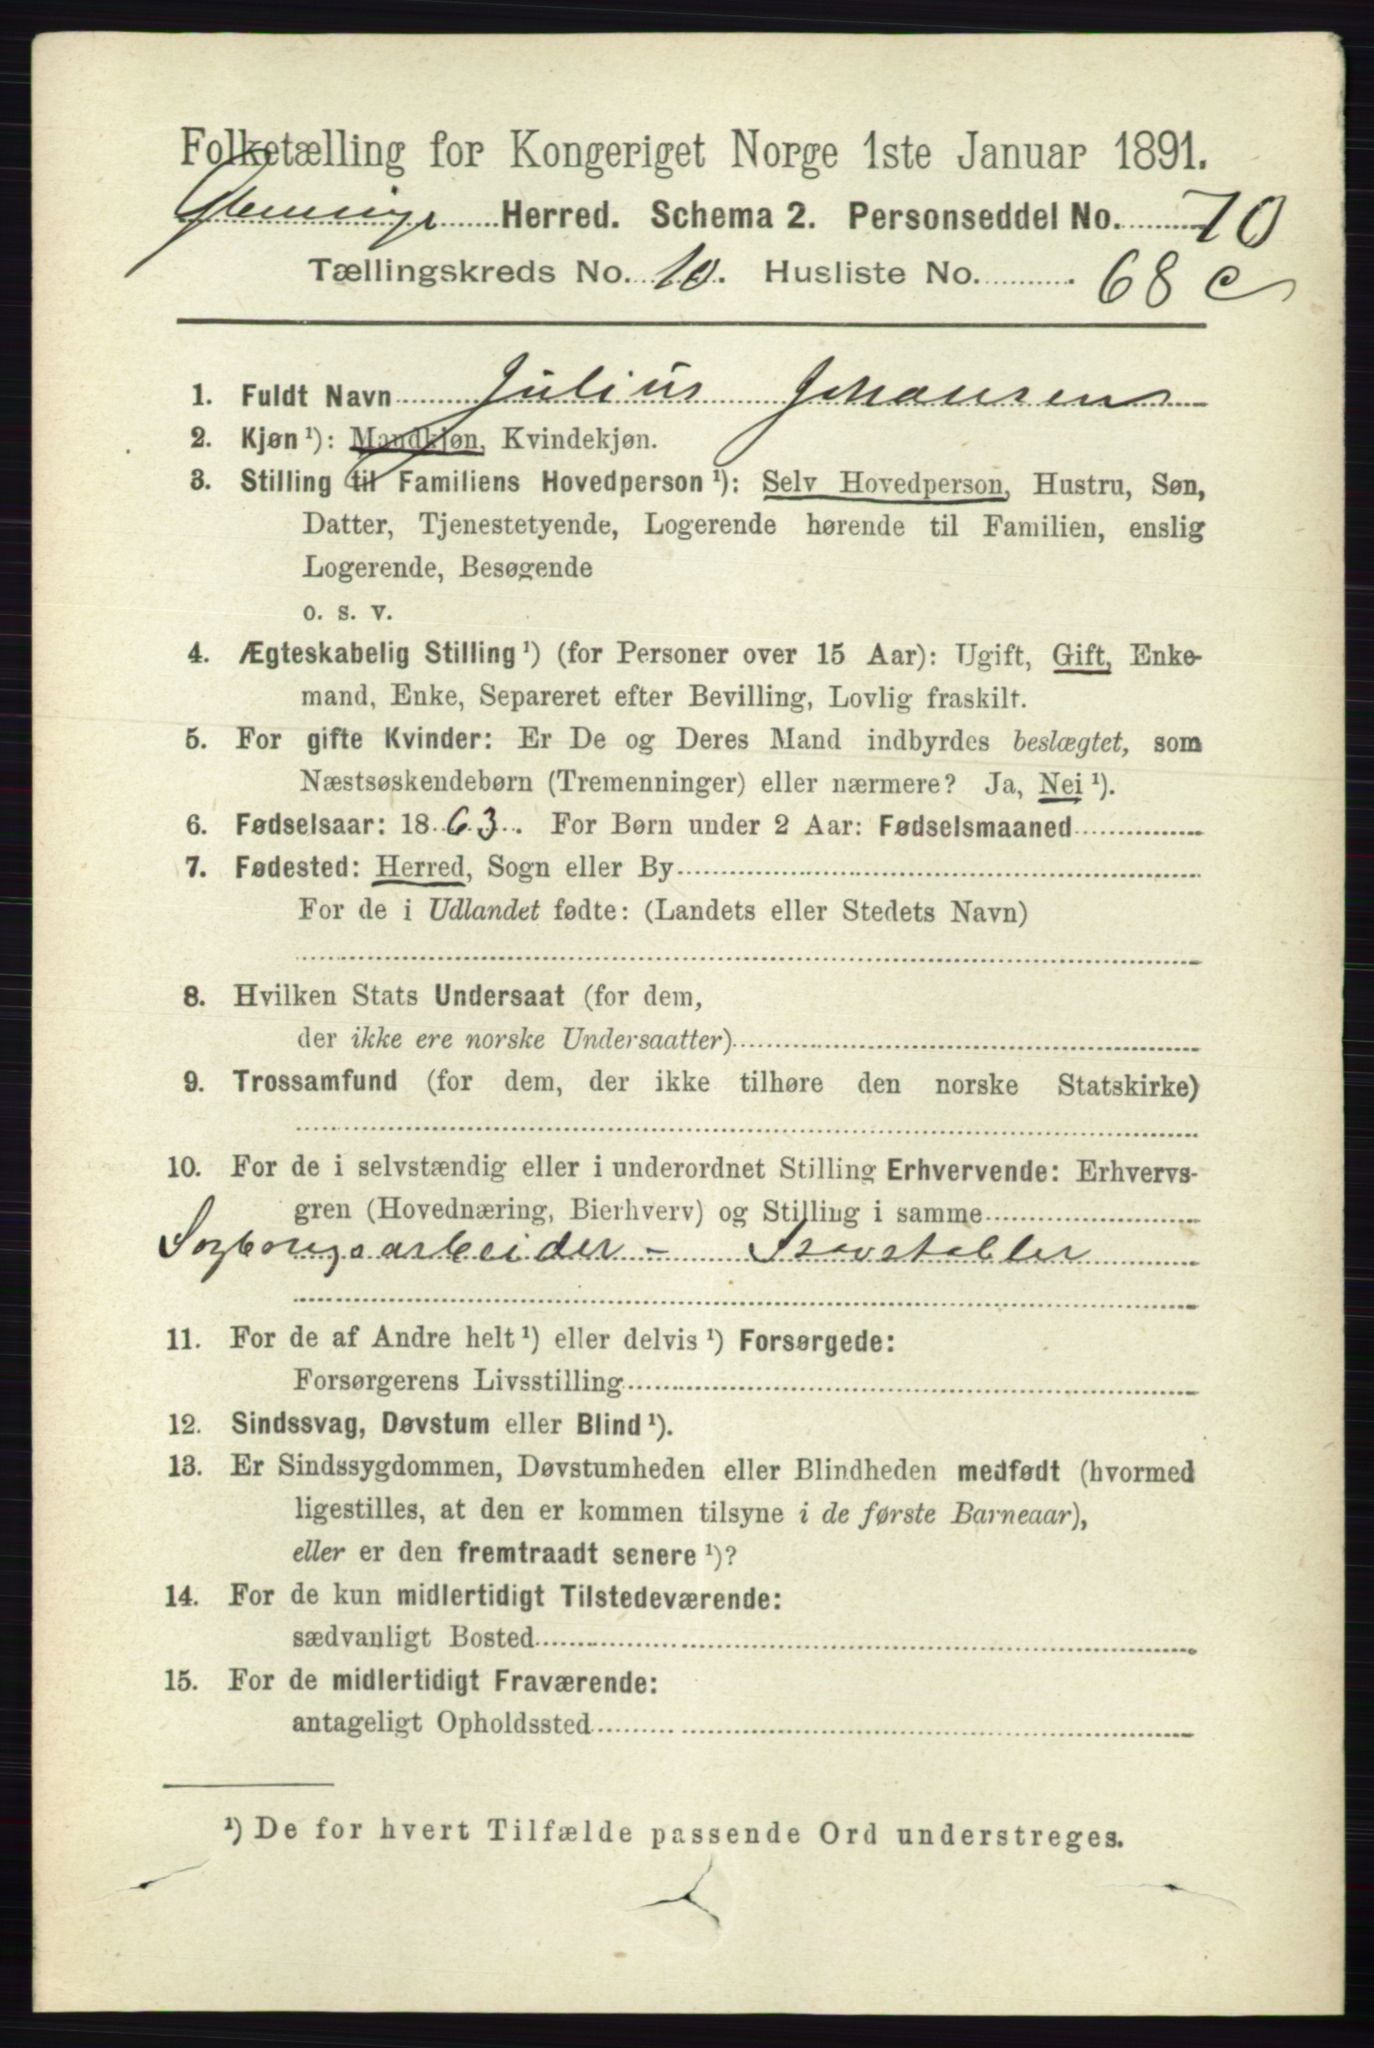 Folketælling for Kongeriget Norge 1ste Januar 1891.
Glemminge Herred. Schema 2. Personseddel No. 70
Tællingskreds No. 10. Husliste No. 68 c
1. Fuldt Navn Julius Johansen
2. Kjøn ¹): Mandkjøn, Kvindekjøn.
3. Stilling til Familiens Hovedperson ¹): Selv Hovedperson, Hustru, Søn,
Datter, Tjenestetyende, Logerende hørende til Familien, enslig
Logerende, Besøgende
o. s. v.
4. Ægteskabelig Stilling ¹) (for Personer over 15 Aar): Ugift, Gift, Enke-
mand, Enke, Separeret efter Bevilling, Lovlig fraskilt.
5. For gifte Kvinder: Er De og Deres Mand indbyrdes beslægtet, som
Næstsøskendebørn (Tremenninger) eller nærmere? Ja, Nei ¹).
6. Fødselsaar: 1863. For Børn under 2 Aar: Fødselsmaaned
7. Fødested: Herred, Sogn eller By
For de i Udlandet fødte: (Landets eller Stedets Navn)
8. Hvilken Stats Undersaat (for dem,
der ikke ere norske Undersaatter)
9. Trossamfund (for dem, der ikke tilhøre den norske Statskirke)
10. For de i selvstændig eller i underordnet Stilling Erhvervende: Erhvervs-
gren (Hovednæring, Bierhverv) og Stilling i samme
Sagbrugsarbeider -
11. For de af Andre helt ¹) eller delvis ¹) Forsørgede:
Forsørgerens Livsstilling
12. Sindssvag, Døvstum eller Blind ¹).
13. Er Sindssygdommen, Døvstumheden eller Blindheden medfødt (hvormed
ligestilles, at den er kommen tilsyne i de første Barneaar),
eller er den fremtraadt senere ¹)?
14. For de kun midlertidigt Tilstedeværende:
sædvanligt Bosted
15. For de midlertidigt Fraværende:
antageligt Opholdssted
¹) De for hvert Tilfælde passende Ord understreges.